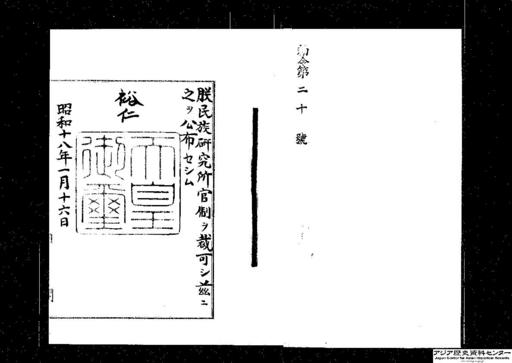 勅令第二十號
朕民族研究所官制ヲ裁可シ茲ニ
之ヲ公布セシム
裕仁
天皇御璽
昭和十八年一月十六日
アジア歴史資料センター
Japan Center for Asian Historical Records